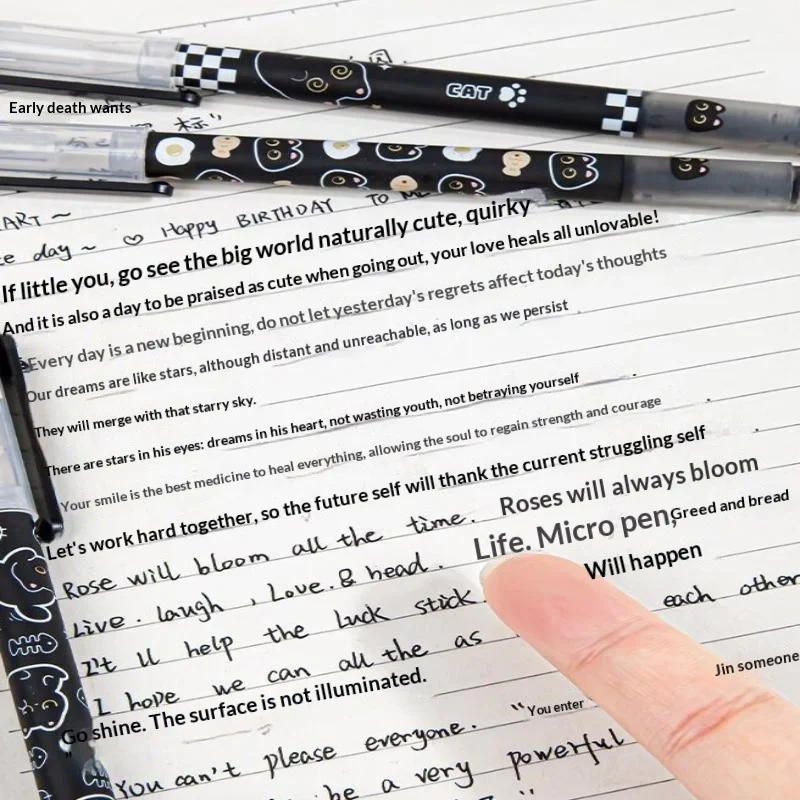 CAT
Early death wants
标”
ART ~
e day ~ ♡ Happy BIRTHDAY TO ME
If little you, go see the big world naturally cute, quirky
And it is also a day to be praised as cute when going out, your love heals all unlovable!
Every day is a new beginning, do not let yesterday's regrets affect today's thoughts
Our dreams are like stars, although distant and unreachable, as long as we persist
They will merge with that starry sky.
There are stars in his eyes: dreams in his heart, not wasting youth, not betraying yourself
Your smile is the best medicine to heal everything, allowing the soul to regain strength and courage
Let's work hard together, so the future self will thank the current struggling self
Roses will always bloom
Rose will bloom all the time.
Life. Micro pen, Greed and bread
Live. laugh, Love. & head.
Will happen
It ll help the luck stick each other
I hope we can all the as
Jin someone
Go shine. The surface is not illuminated.
“You enter
You can't please everyone.
be a very powerful